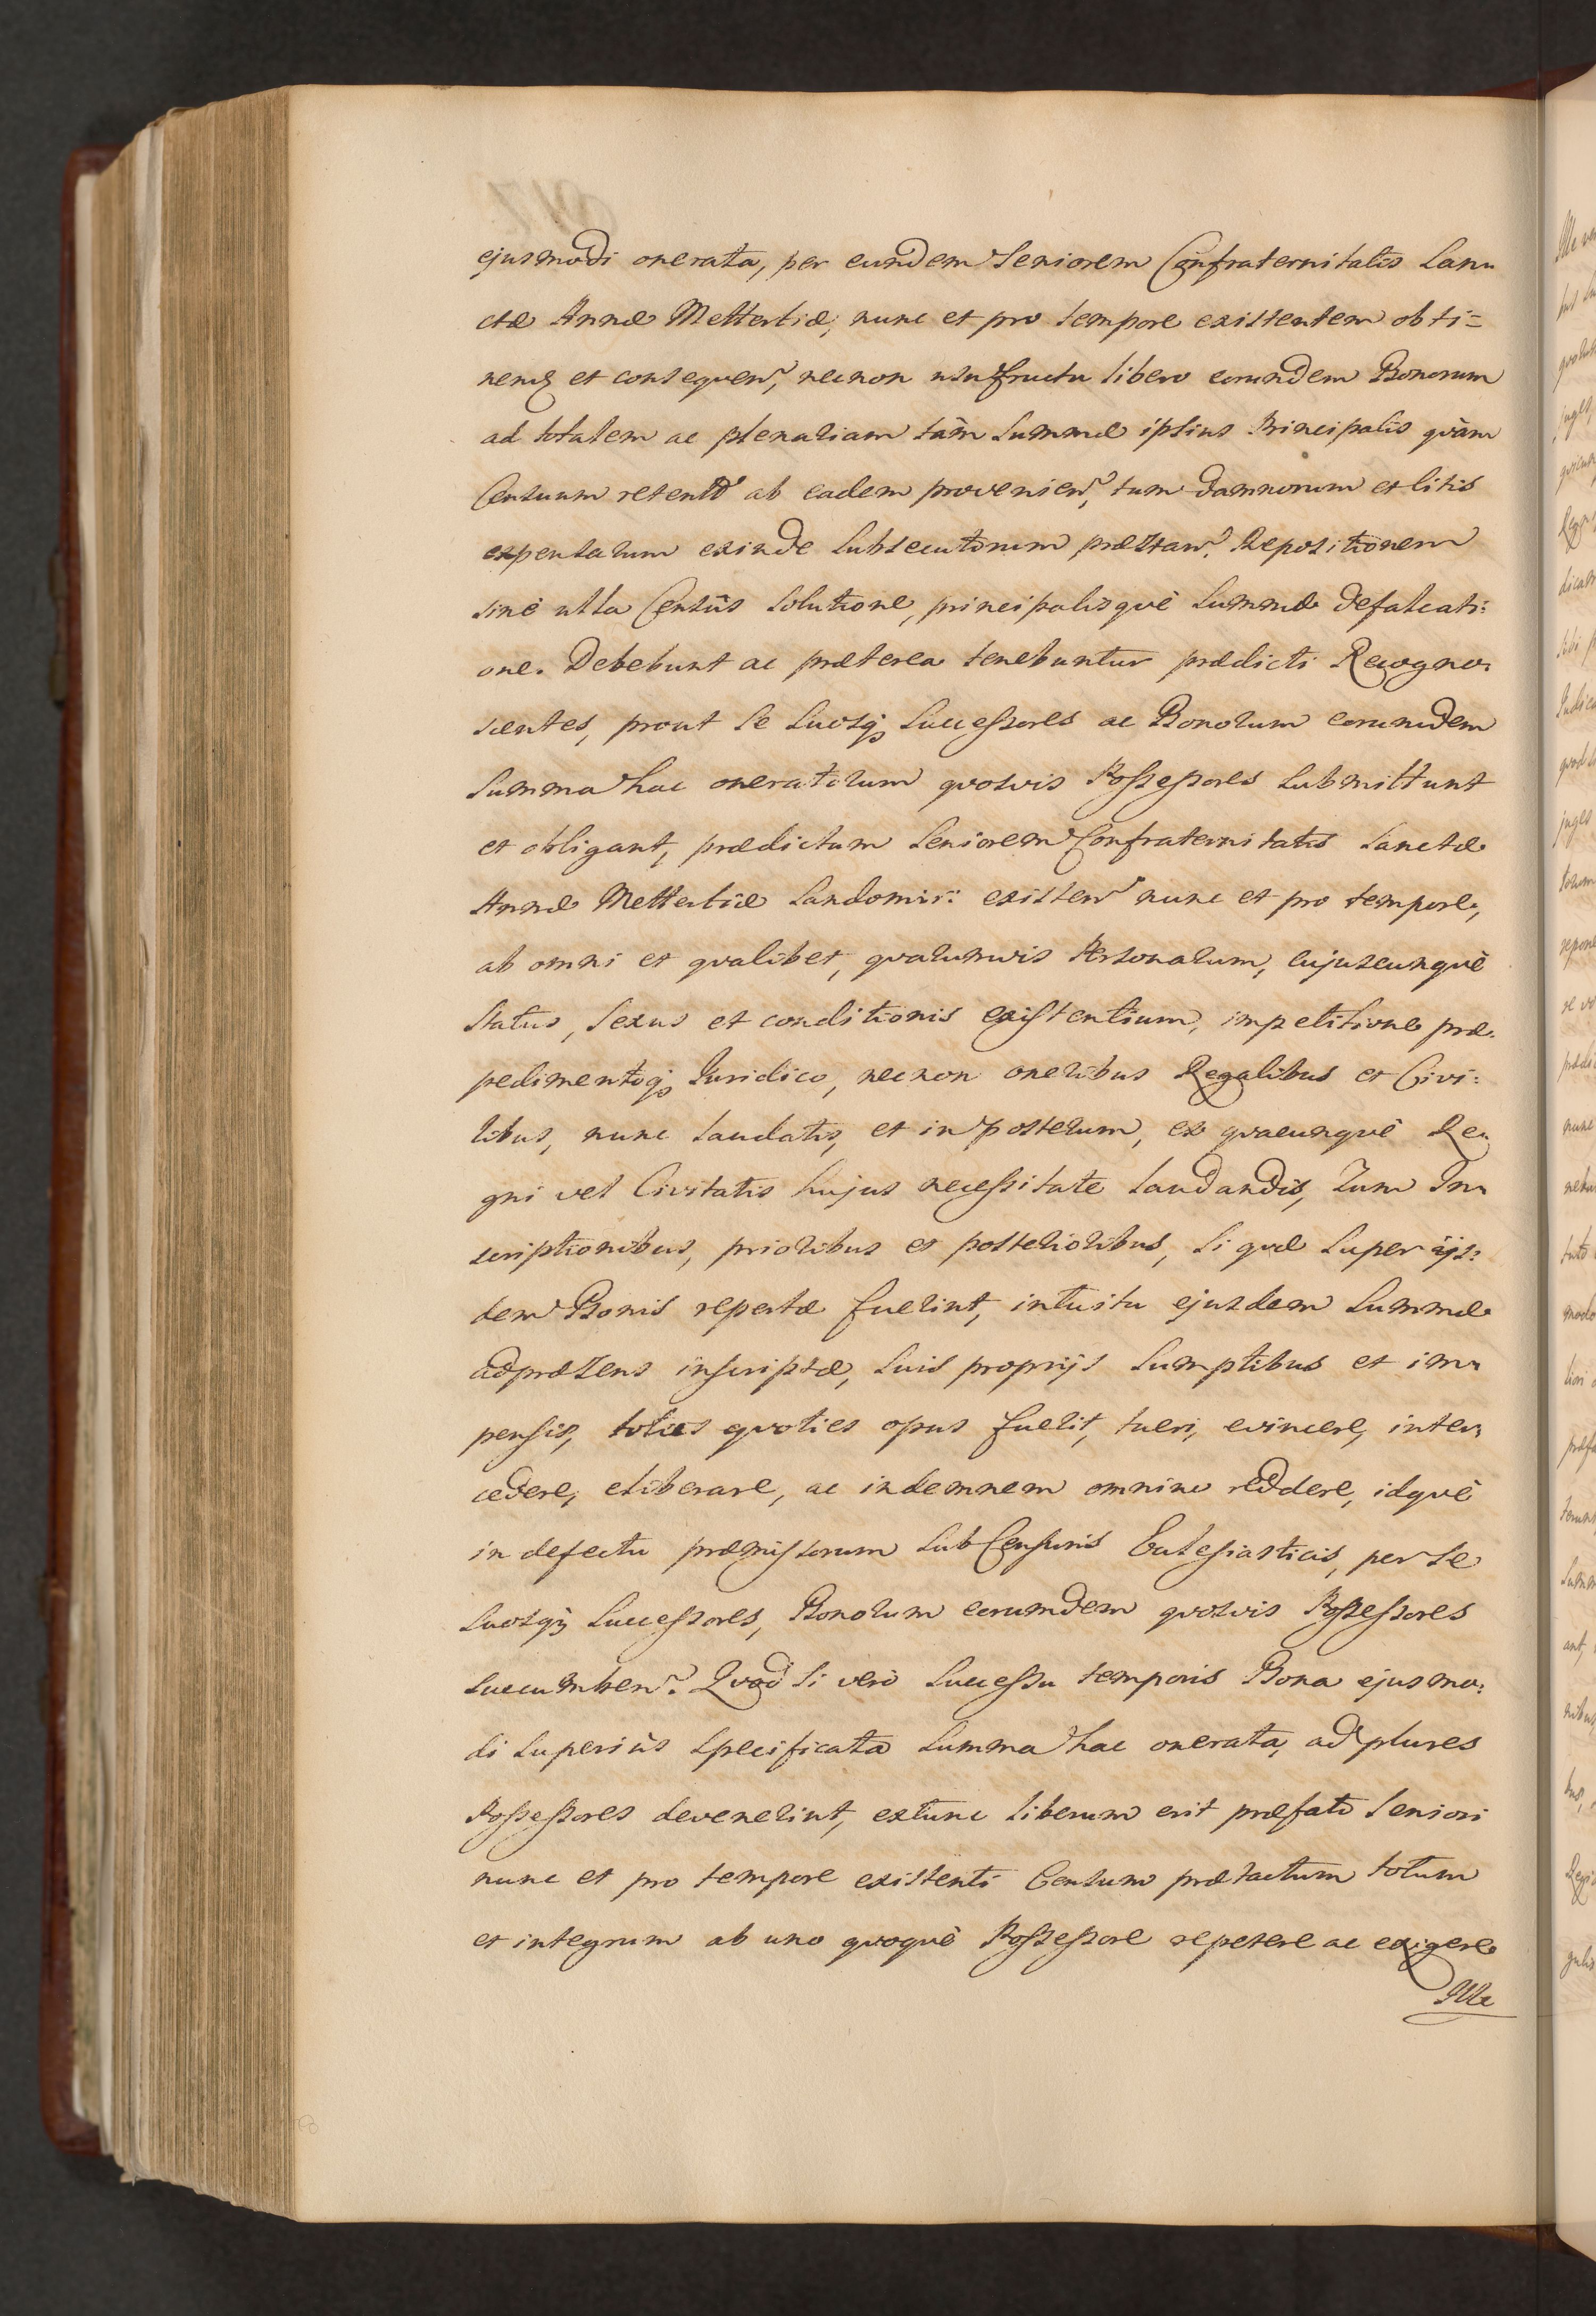 ejusmodi onerata, per eundem Seniorem Confraternitatis San=
ctæ Annæ Mettertiæ, nunc et pro tempore existentem obti=
nenꝫ et consequen, necnon usufructu libero eorundem Bonorum
ad totalem ac plenariam tàm Summæ ipsius Principalis quàm
Censuum retent ab eadem provenien, tum damnorum et litis
expensarum exinde subsecutorum præstan. Repositionem
sinè ulla Censûs solutione, principalisquè Summæ defalcati:
one. Debebunt ac præterea tenebuntur prædicti Recogno:
scentes, prout se suosq; Successores ac Bonorum eorumdem
Summa hac oneratorum quosvis Possessores submittunt
et obligant, prædictum Seniorem Confraternitatis Sanctæ
Annæ Mettertiæ Sandomir: existen nunc et pro tempore,
ab omni et qualibet, quarumvis Personarum, cujuscunquè
Status, Sexus et conditionis existentium, impetitione præ:
pedimentoq; Juridico, necnon oneribus Regalibus et Civi:
libus, nunc laudatis, et in posterum, ex quacunquè Re=
gni vel Civitatis hujus necessitate laudandis, Tum In=
scriptionibus, prioribus et posterioribus, si quæ super ijs:
dem Bonis repertæ fuerint, intuitu ejusdem Summæ
ad præsens inscriptæ, suis proprijs sumptibus et im=
pensis, toties quoties opus fuerit, tueri, evincere, inter=
cedere, eliberare, ac indemnem omnino reddere, idquè
in defectu præmissorum sub Censuris Eclesiasticis, per se
suosq; Successores, Bonorum eorumdem quosvis Possessores
succumben. Quod si verò successu temporis Bona ejusmo:
di superiùs specificata Summa hac onerata, ad plures
Possessores devenerint, extunc liberum erit præfato Seniori
nunc et pro tempore existenti Censum prætactum totum
et integrum ab uno quoquè Possessore repetere ac exigere
Ille